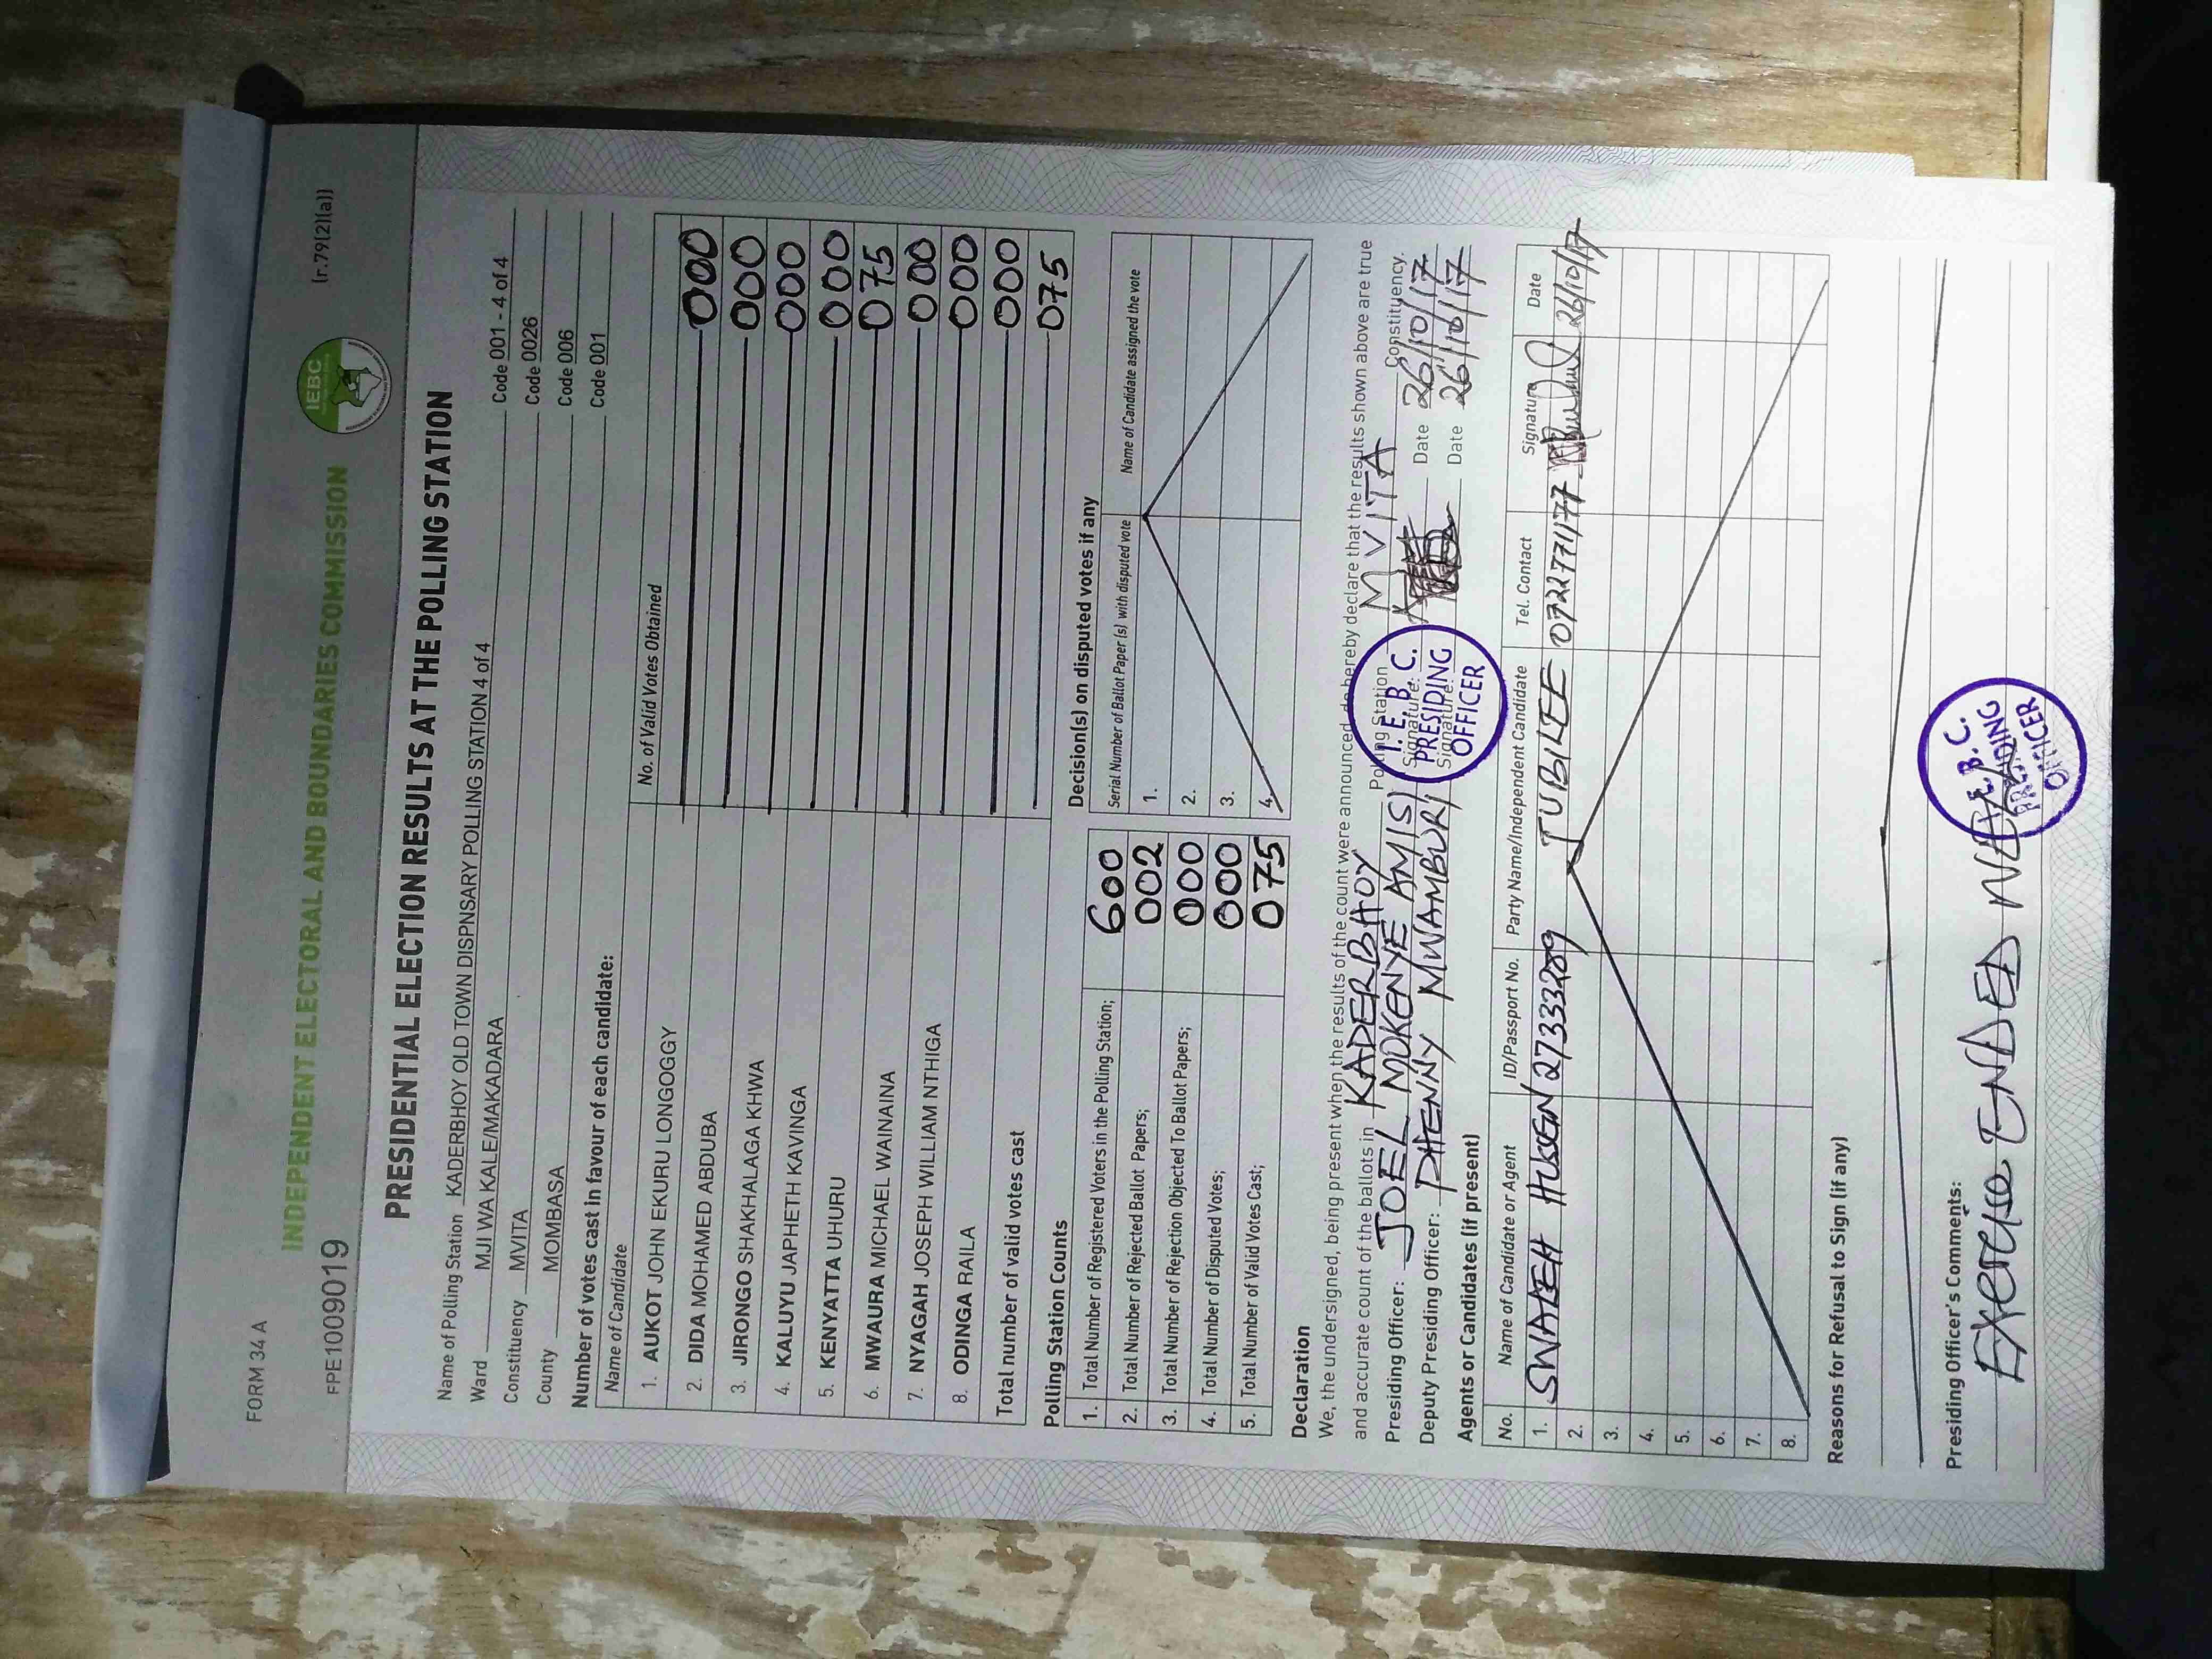 FORM 34 A
(r.79(2)(a))
INDEPENDENT ELECTORAL AND BOUNDARIES COMMISSION
IEBC
FPE1009019
PRESIDENTIAL ELECTION RESULTS AT THE POLLING STATION
Name of Polling Station KADERBHOY OLD TOWN DISPNSARY POLLING STATION 4 of 4 Code 001 - 4 of 4
Ward MJI WA KALE/MAKADARA Code 0026
Constituency MVITA Code 006
County MOMBASA Code 001
Number of votes cast in favour of each candidate:
Name of Candidate No. of Valid Votes Obtained
1. AUKOT JOHN EKURU LONGOGGY 000
2. DIDA MOHAMED ABDUBA 000
3. JIRONGO SHAKHALAGA KHWA 000
4. KALUYU JAPHETH KAVINGA 000
5. KENYATTA UHURU 075
6. MWAURA MICHAEL WAINAINA 000
7. NYAGAH JOSEPH WILLIAM NTHIGA 000
8. ODINGA RAILA 000
Total number of valid votes cast 075
Polling Station Counts
1. Total Number of Registered Voters in the Polling Station; 600
2. Total Number of Rejected Ballot Papers; 002
3. Total Number of Rejection Objected To Ballot Papers; 000
4. Total Number of Disputed Votes; 000
5. Total Number of Valid Votes Cast; 075
Decision(s) on disputed votes if any
Serial Number of Ballot Paper (s) with disputed vote Name of Candidate assigned the vote
1.
2.
3.
4.
Declaration
We, the undersigned, being present when the results of the count were announced, do hereby declare that the results shown above are true
and accurate count of the ballots in KADERBHOY Polling Station MVITA Constituency.
Presiding Officer: JOEL MOKENYE AMISI Signature: Date 26/10/17
Deputy Presiding Officer: PHENNY MWAMBURI Signature: Date 26/10/17
I. E. B. C.
PRESIDING
OFFICER
Agents or Candidates (if present)
No. Name of Candidate or Agent ID/Passport No. Party Name/Independent Candidate Tel. Contact Signature Date
1. SWALEH HUSSEN 27333289 JUBILEE 0722771177 26/10/17
2.
3.
4.
5.
6.
7.
8.
Reasons for Refusal to Sign (if any)
Presiding Officer's Comments:
Exercise ENDED WELL
I. E. B. C.
PRESIDING
OFFICER